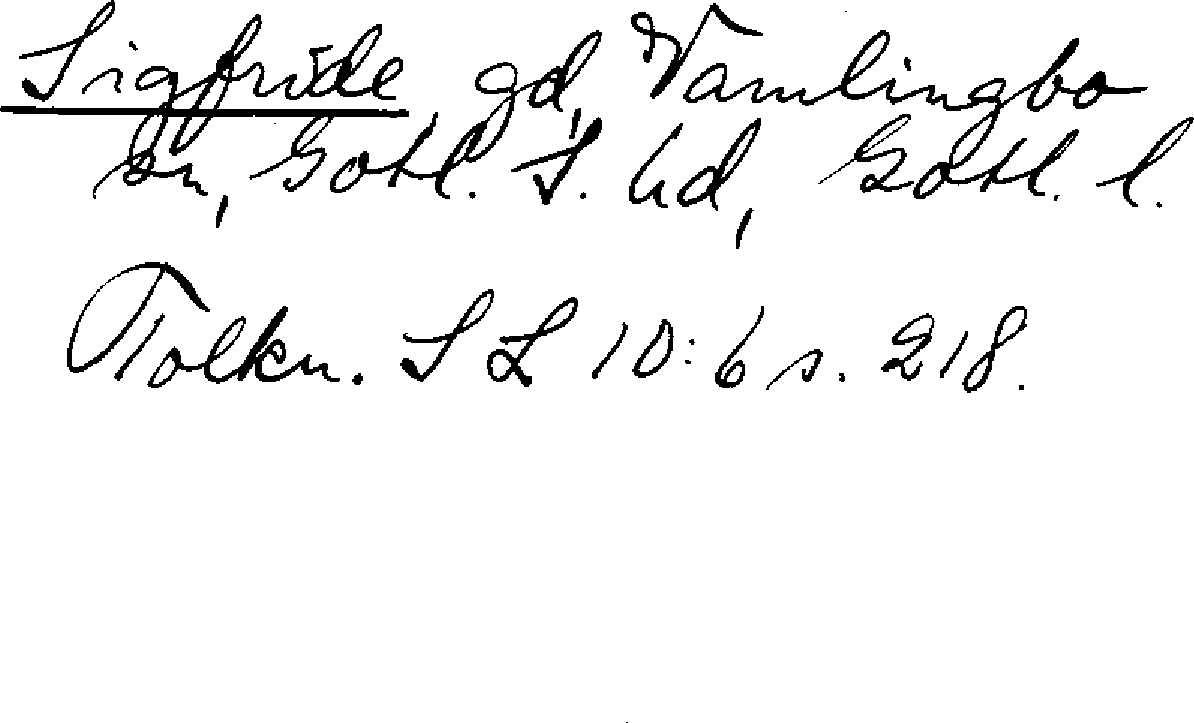 Sigfride, gd, Vamlingbo
sn, Gotl. S. hd, Gotl. l.
Tolkn. S L 10:6 s. 218.